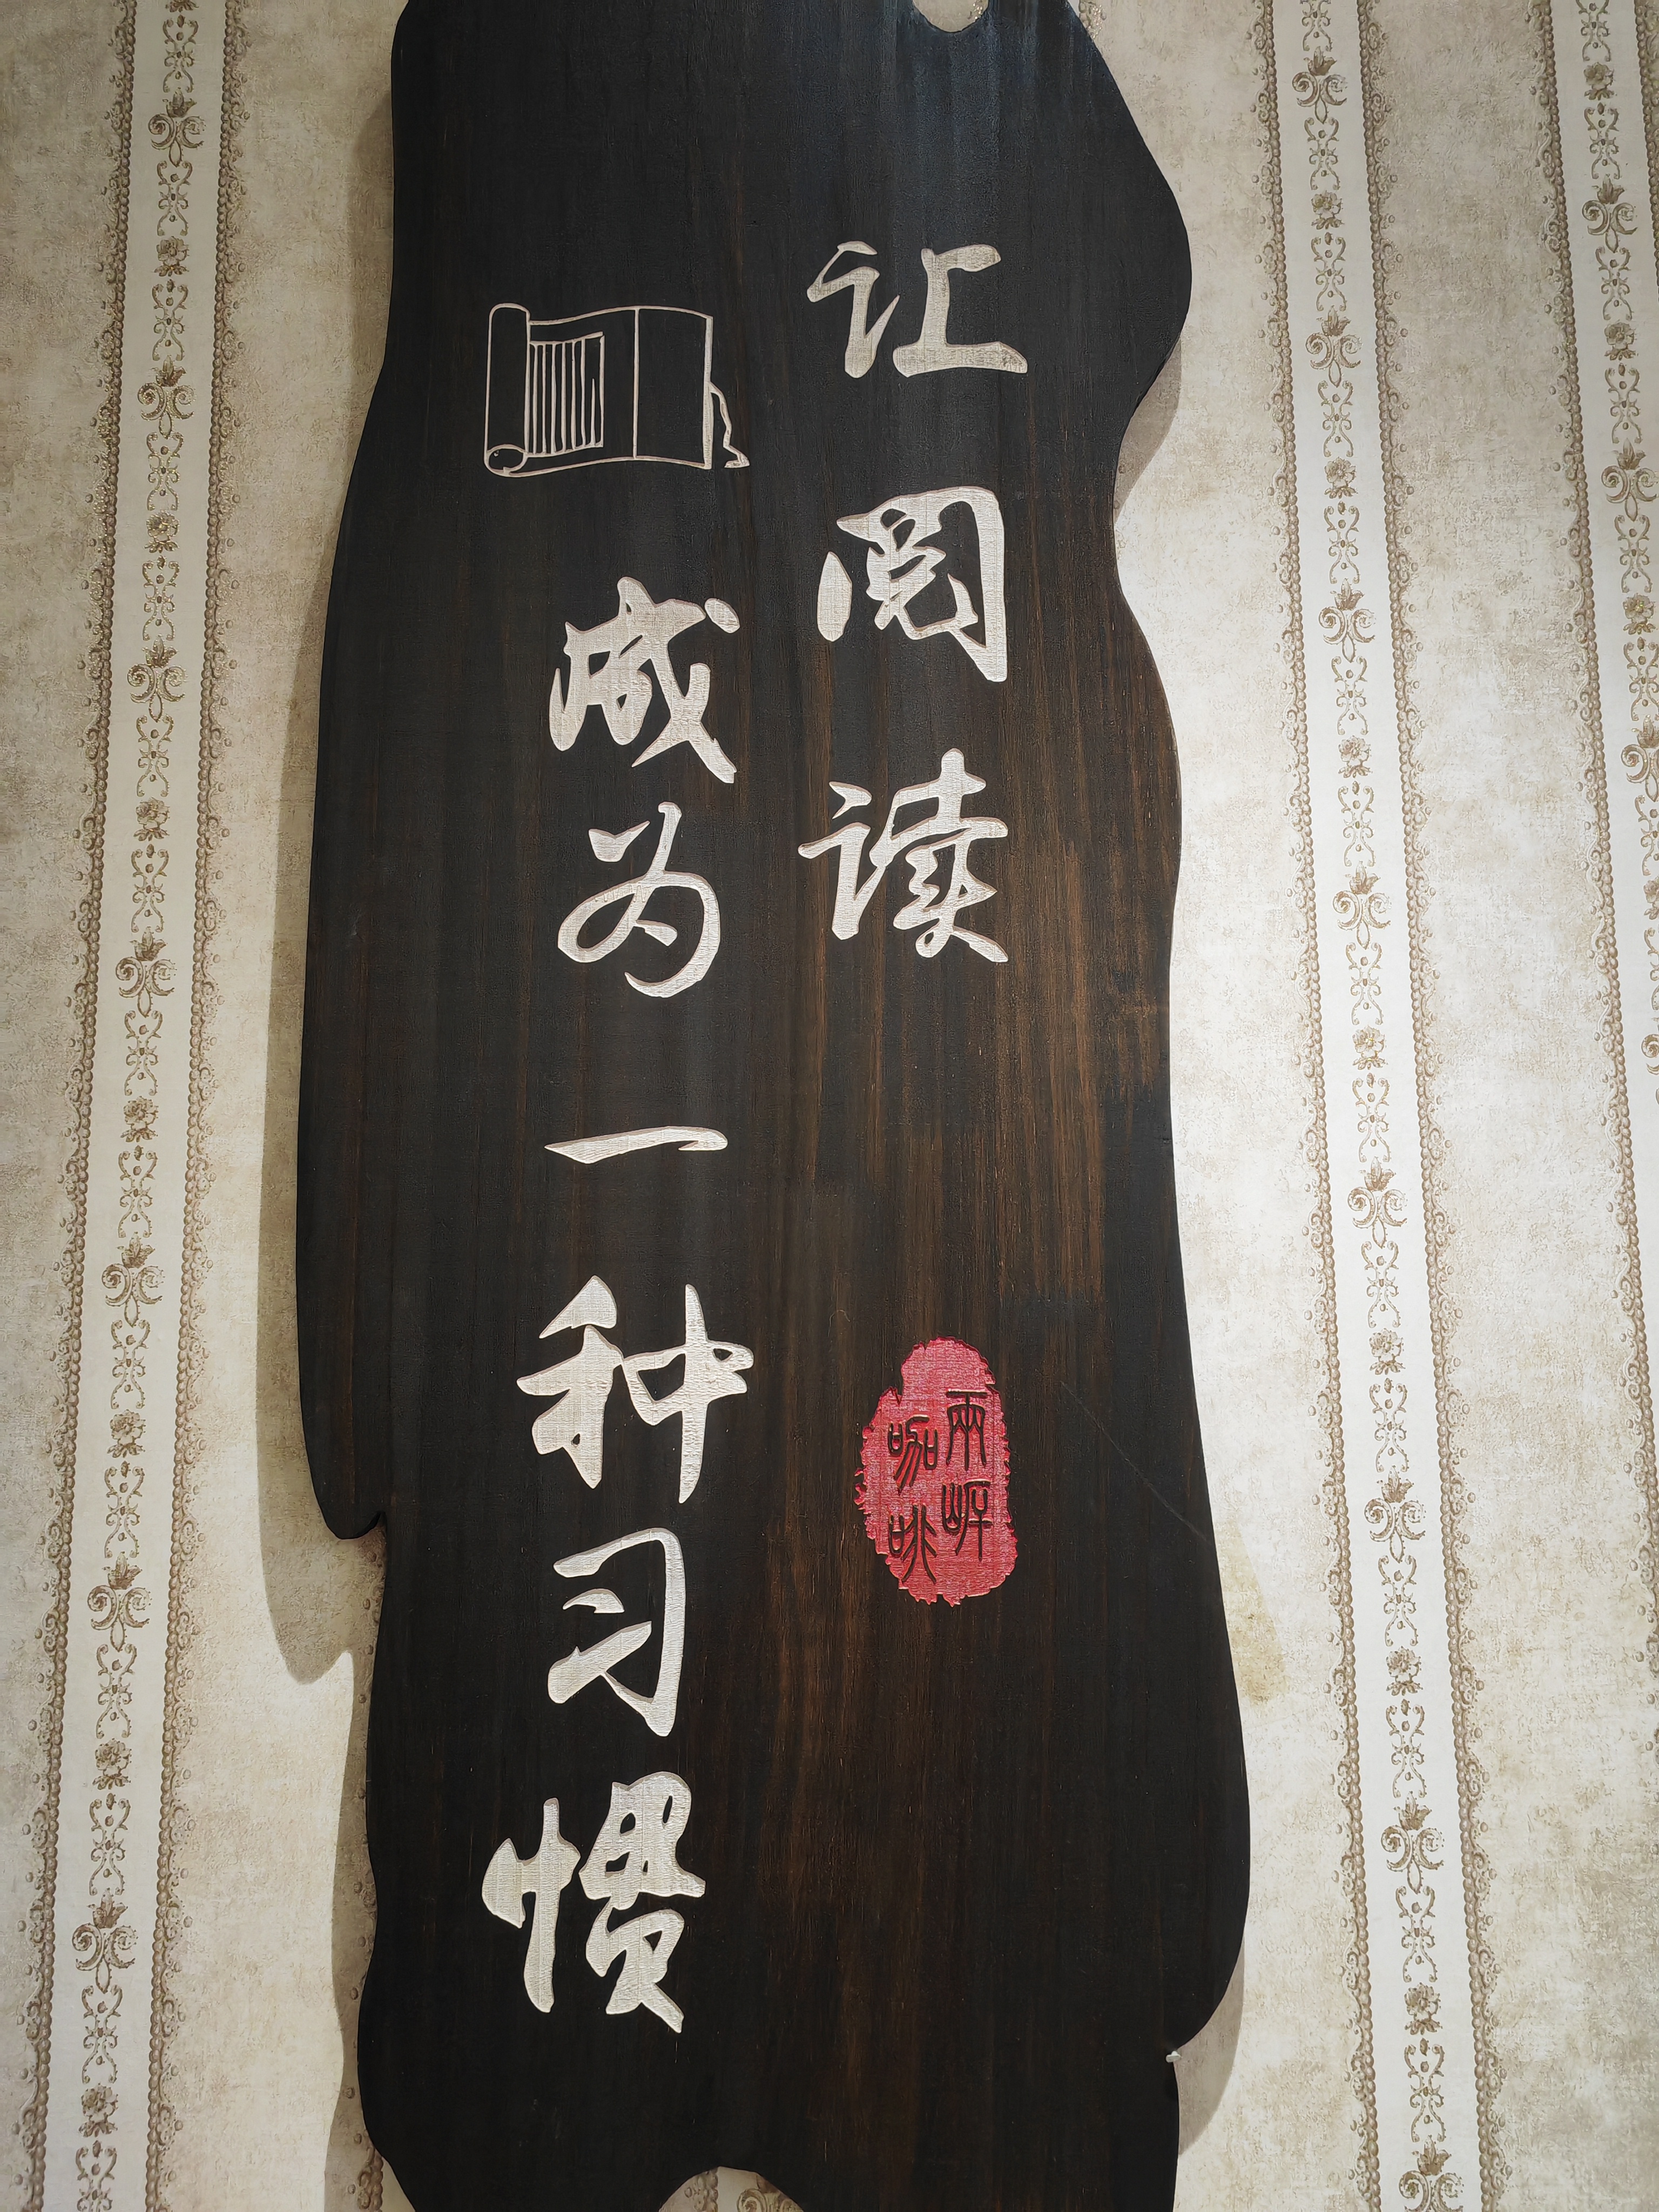 让阅读
成为一种习惯
兩岸
咖啡